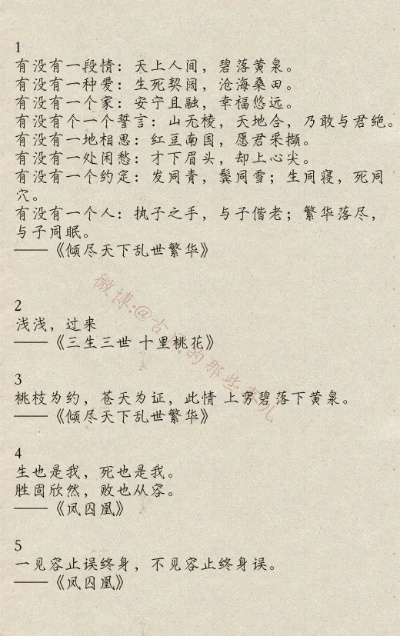 1
有没有一段情：天上人间，碧落黄泉。
有没有一种爱：生死契阔，沧海桑田。
有没有一个家：安宁且融，幸福悠远。
有没有个一个誓言：山无棱，天地合，乃敢与君绝。
有没有一地相思：红豆南国，愿君采撷。
有没有一处闲愁：才下眉头，却上心尖。
有没有一个约定：发同青，鬓同雪；生同寝，死同
穴。
有没有一个人：执子之手，与子偕老；繁华落尽，
与子同眠。
——《倾尽天下乱世繁华》
2
浅浅，过来
——《三生三世 十里桃花》
3
桃枝为约，苍天为证，此情 上穷碧落下黄泉。
——《倾尽天下乱世繁华》
4
生也是我，死也是我。
胜固欣然，败也从容。
——《凤囚凰》
5
一见容止误终身，不见容止终身误。
——《凤囚凰》
微博:@古
的那些
儿